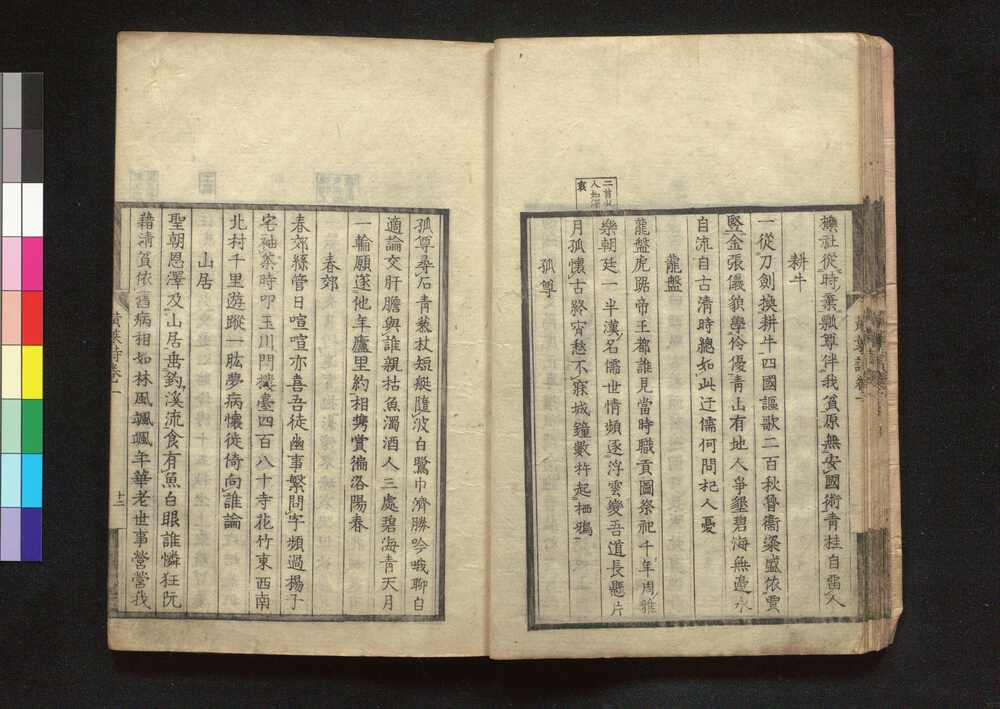 櫟社從時棄瓢尊伴我貧原無安國術青桂自留人
耕牛
一從刀劍換耕牛四國謳歌二百秋魯衞粢盛依賈
豎金張儀貌學伶優青山有地人爭墾碧海無邊水
自流自古清時總如此迂儒何問杞人憂
龍盤
龍盤虎踞帝王都誰見當時職貢圖祭祀千年周雅
樂朝廷一半漢名儒世情頻逐浮雲變吾道長懸片
月孤懷古終宵愁不寐城鐘數杵起栖鴉
孤尊
二首
人如
哀
孤尊尋石青藜杖短艇隨波白鷺巾濟勝吟哦聊自
適論文肝膽與誰親枯魚濁酒人三處碧海青天月
一輪願遂他年廬里約相携賞徧洛陽春
春郊
春郊絲管日喧喧亦喜吾徒幽事繁問字頻過揚子
宅袖茶時叩玉川門樓臺四百八十寺花竹東西南
北村千里遊蹤一肱夢病懷徙倚向誰論
山居
聖朝恩澤及山居垂釣溪流食有魚白眼誰憐狂阮
藉清貧依舊病相如林風颯颯年華老世事營營我
黃葉詩卷一
十二